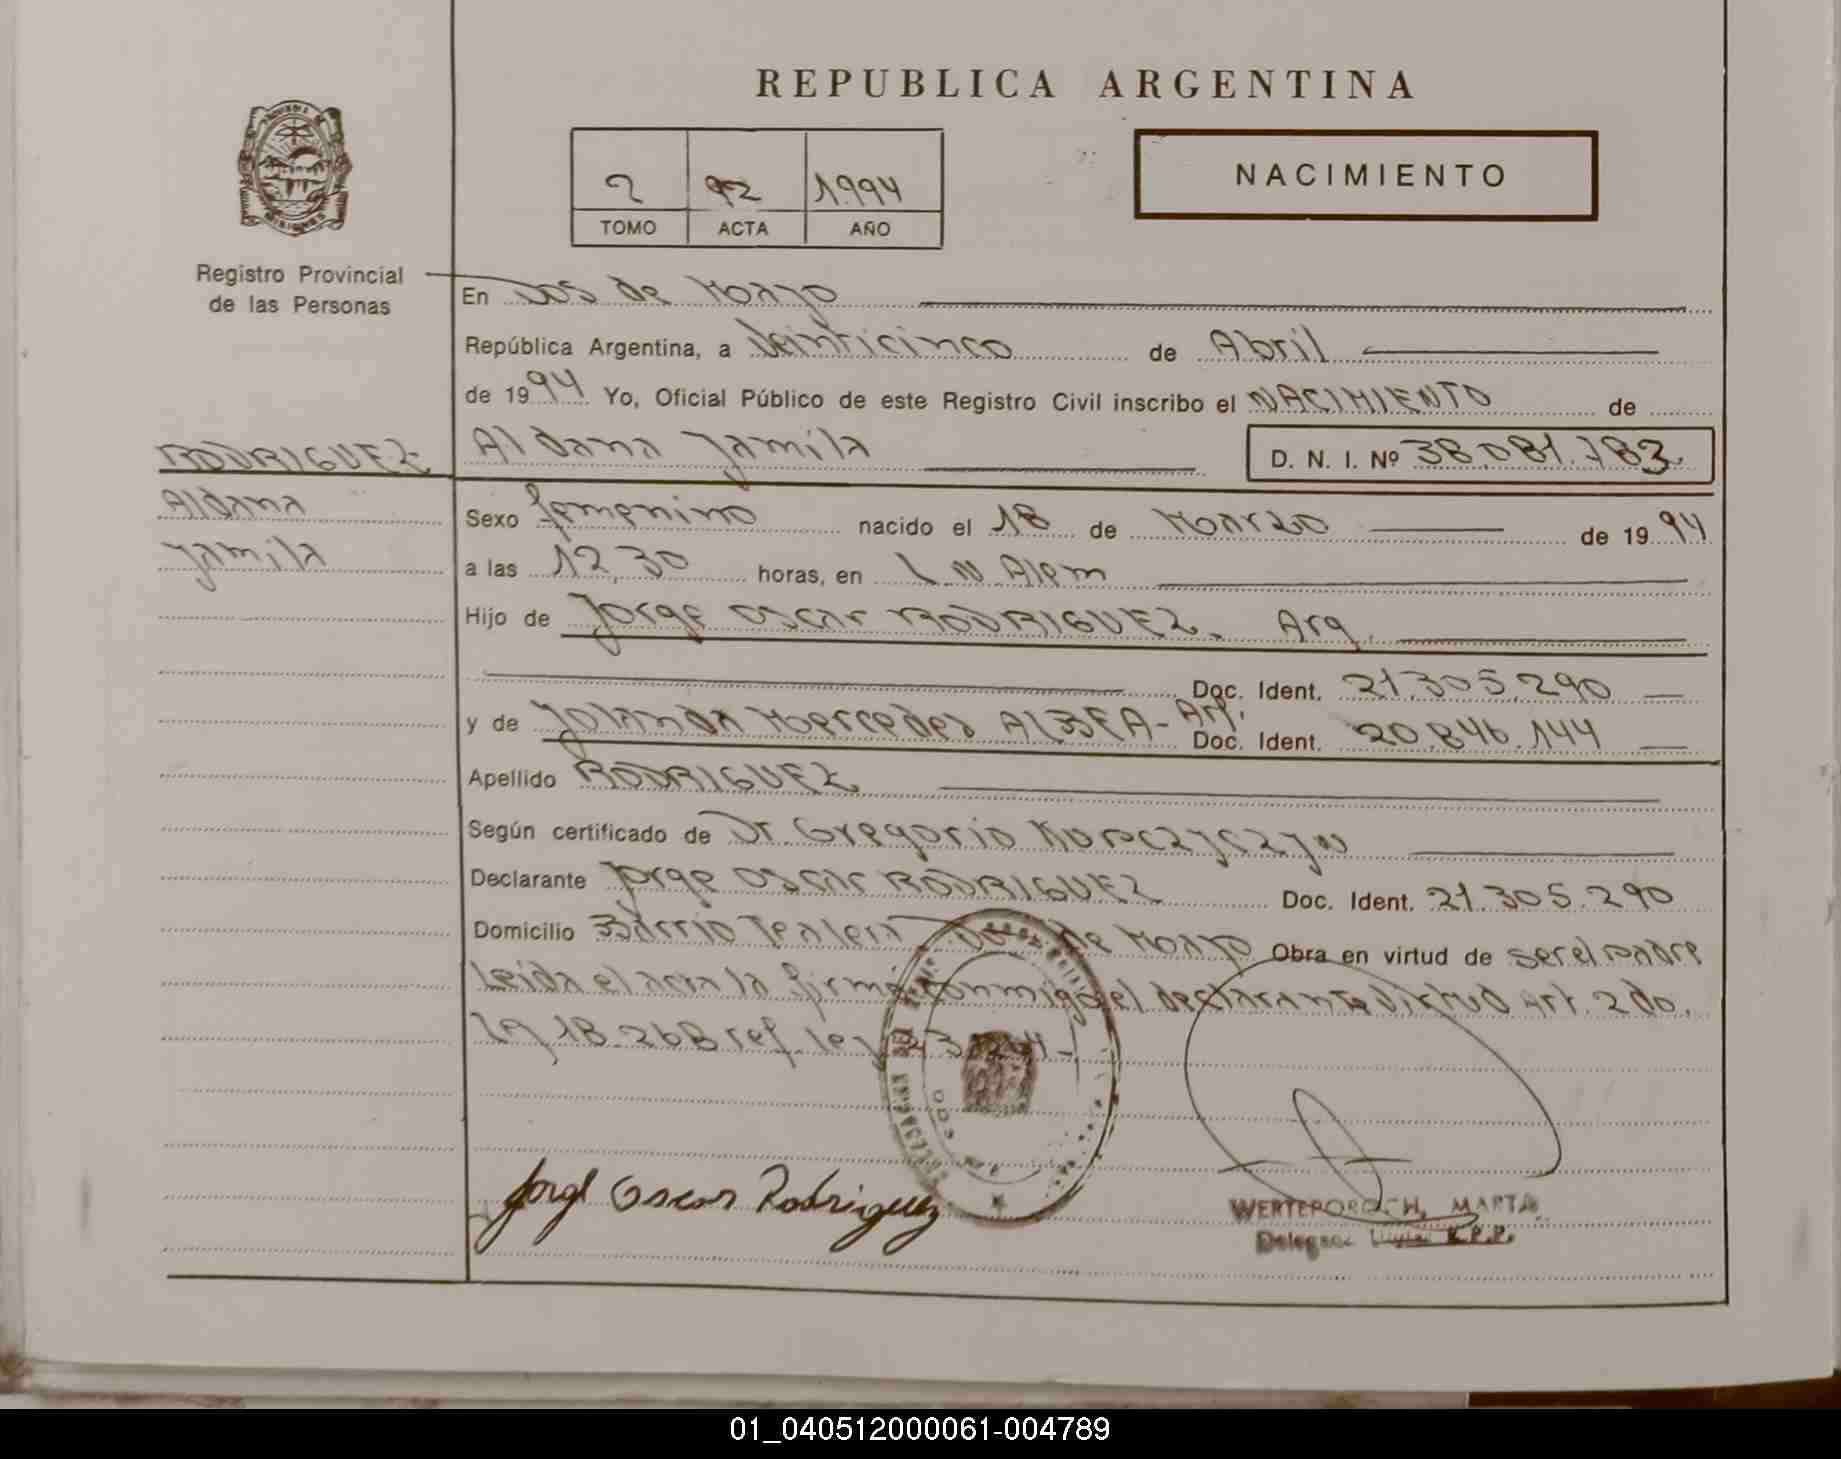 REPUBLICA ARGENTINA
2 92 1.994
TOMO ACTA AÑO
NACIMIENTO
Registro Provincial
de las Personas
En Dos de Mayo
República Argentina, a Veinticinco de Abril
de 1994 Yo, Oficial Público de este Registro Civil inscribo el NACIMIENTO de
RODRIGUEZ
Aldana
Yamila
Aldana Yamila D. N. I. Nº 38.081.783
Sexo femenino nacido el 18 de Marzo de 1994
a las 12,30 horas, en L N Alem
Hijo de Jorge Oscar RODRIGUEZ. Arg.
Doc. Ident. 21.305.290
y de Yolanda Mercedes Arg. Doc. Ident. 20.846.144
Apellido RODRIGUEZ
Según certificado de Dr. Gregorio
Declarante Jorge Oscar RODRIGUEZ Doc. Ident. 21.305.290
Domicilio Barrio Dos de Mayo Obra en virtud de ser el padre
Leida el acta la firma conmigo el declarante virtud Art. 2do.
18.268 ref. ley
Jorge Oscar Rodriguez
MARTA
01_040512000061-004789